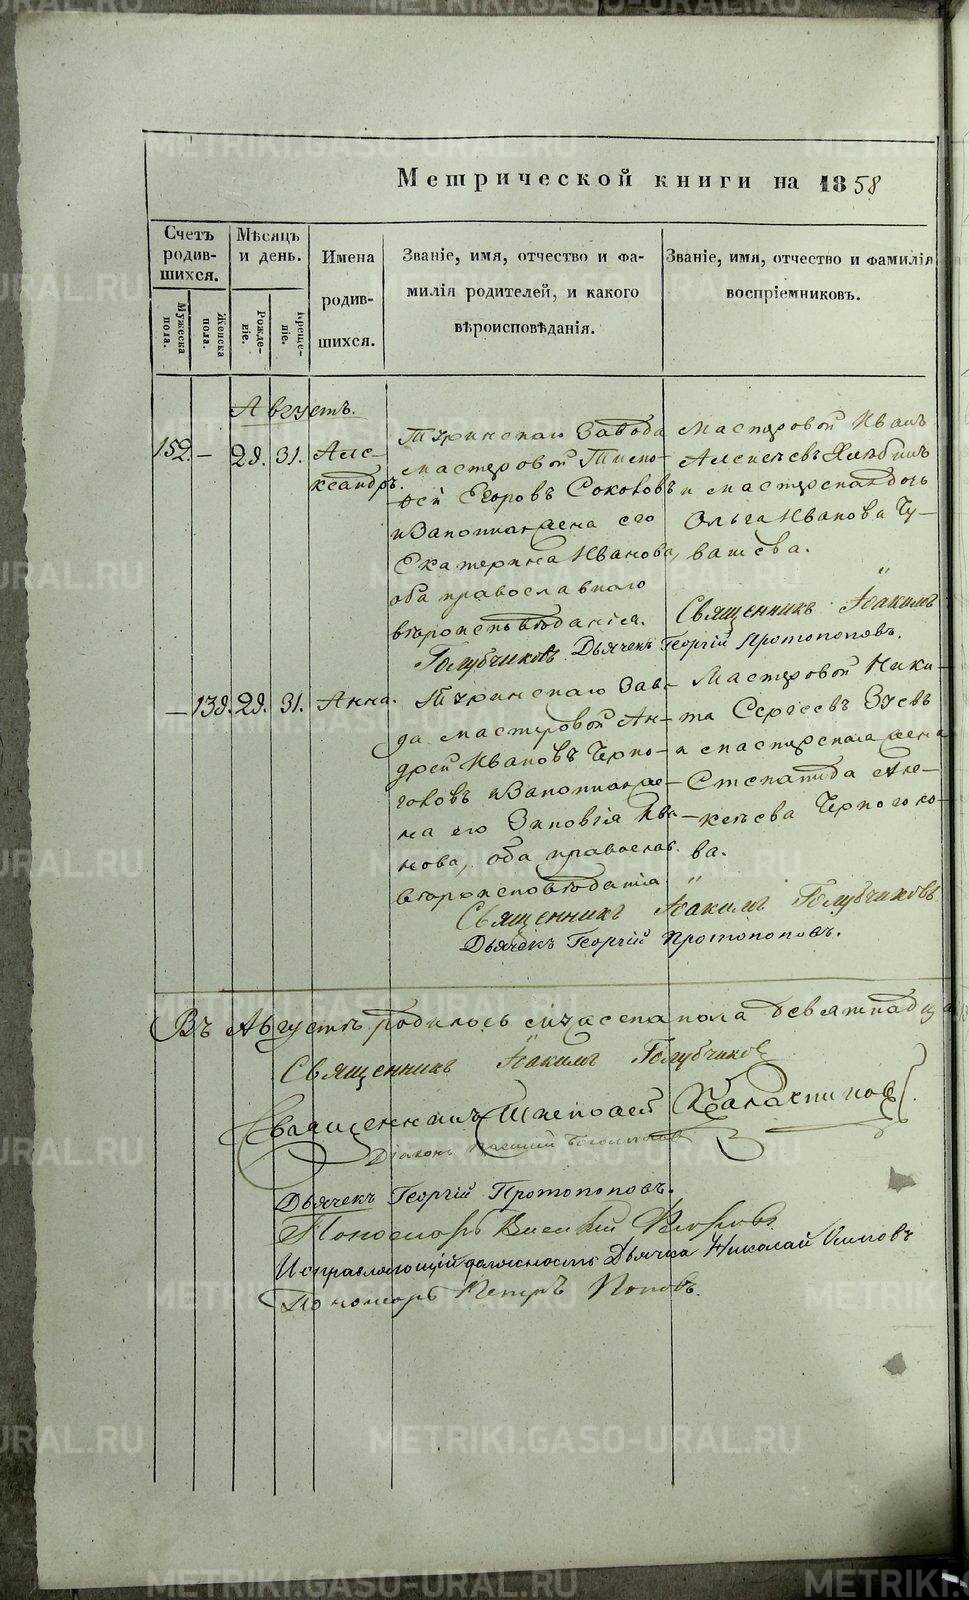 Метрической книги на 1858
Счетъ родив-шихся.
Мужеска пола.
Женска пола.
Мѣсяцъ и день.
Рожде-ніе.
Креще-ніе.
Имена родив-шихся.
Званіе, имя, отчество и фа-
милія родителей, и какого
вѣроисповѣданія.
Званіе, имя, отчество и фамилія
воспріемниковъ.
Августъ.
152. — 28. 31. Але-
ксандръ.
Туринскаго Завода
мастеровой Тимо-
фей Егоровъ Соколовъ
и законная жена его
Екатерина Иванова,
оба православнаго
вѣроисповѣданія.
Мастеровой Иванъ
Алексѣевъ
и мастерская дочь
Ольга Иванова Чу-
вашева.
Священникъ Іоакимъ
Голубчиковъ. Дьячекъ Георгій Протопоповъ.
— 138. 28. 31. Анна.
Туринскаго Заво-
да мастеровой Ан-
дрей Ивановъ Черно-
головъ и законная же-
на его Зиновія Ива-
нова, оба православ.
вѣроисповѣданія
Мастеровой Ники-
та Сергѣевъ Зуевъ
и мастерская жена
Степанида Але-
ксѣева Черноголо-
ва.
Священникъ Іоакимъ Голубчиковъ
Дьячекъ Георгій Протопоповъ.
Въ Августѣ родилось мужеска пола девятнадца
Священникъ Іоакимъ Голубчиковъ
Священникъ
Діаконъ
Дьячекъ Георгій Протопоповъ.
Пономарь Василій
Исправляющій должность Дьячка Николай
Пономарь Петръ Поповъ.
METRIKI.GASO-URAL.RU